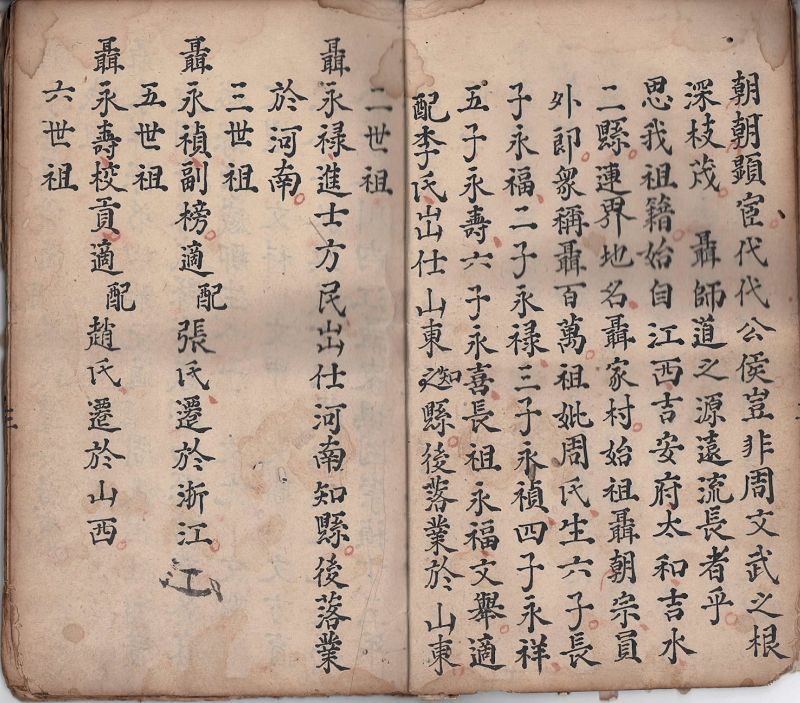 朝朝顕宦代代公侯豈非周文武之根
深枝茂 聶師道之源遠流長者乎
思我祖籍始自江西吉安府太和吉水
二縣連界地名聶家村始祖聶朝宗員
外郎衆稱聶百萬祖妣周氏生六子長
子永福二子永禄三子永禎四子永祥
五子永壽六子永喜長祖永福文舉適
配李氏出仕山東知之縣後落業於山東
二世祖
聶永禄進士方氏出仕河南知縣後落業
於河南
三世祖
聶永禎副榜適配張氏遷於浙江
江
五世祖
聶永壽校貢適配趙氏遷於山西
六世祖